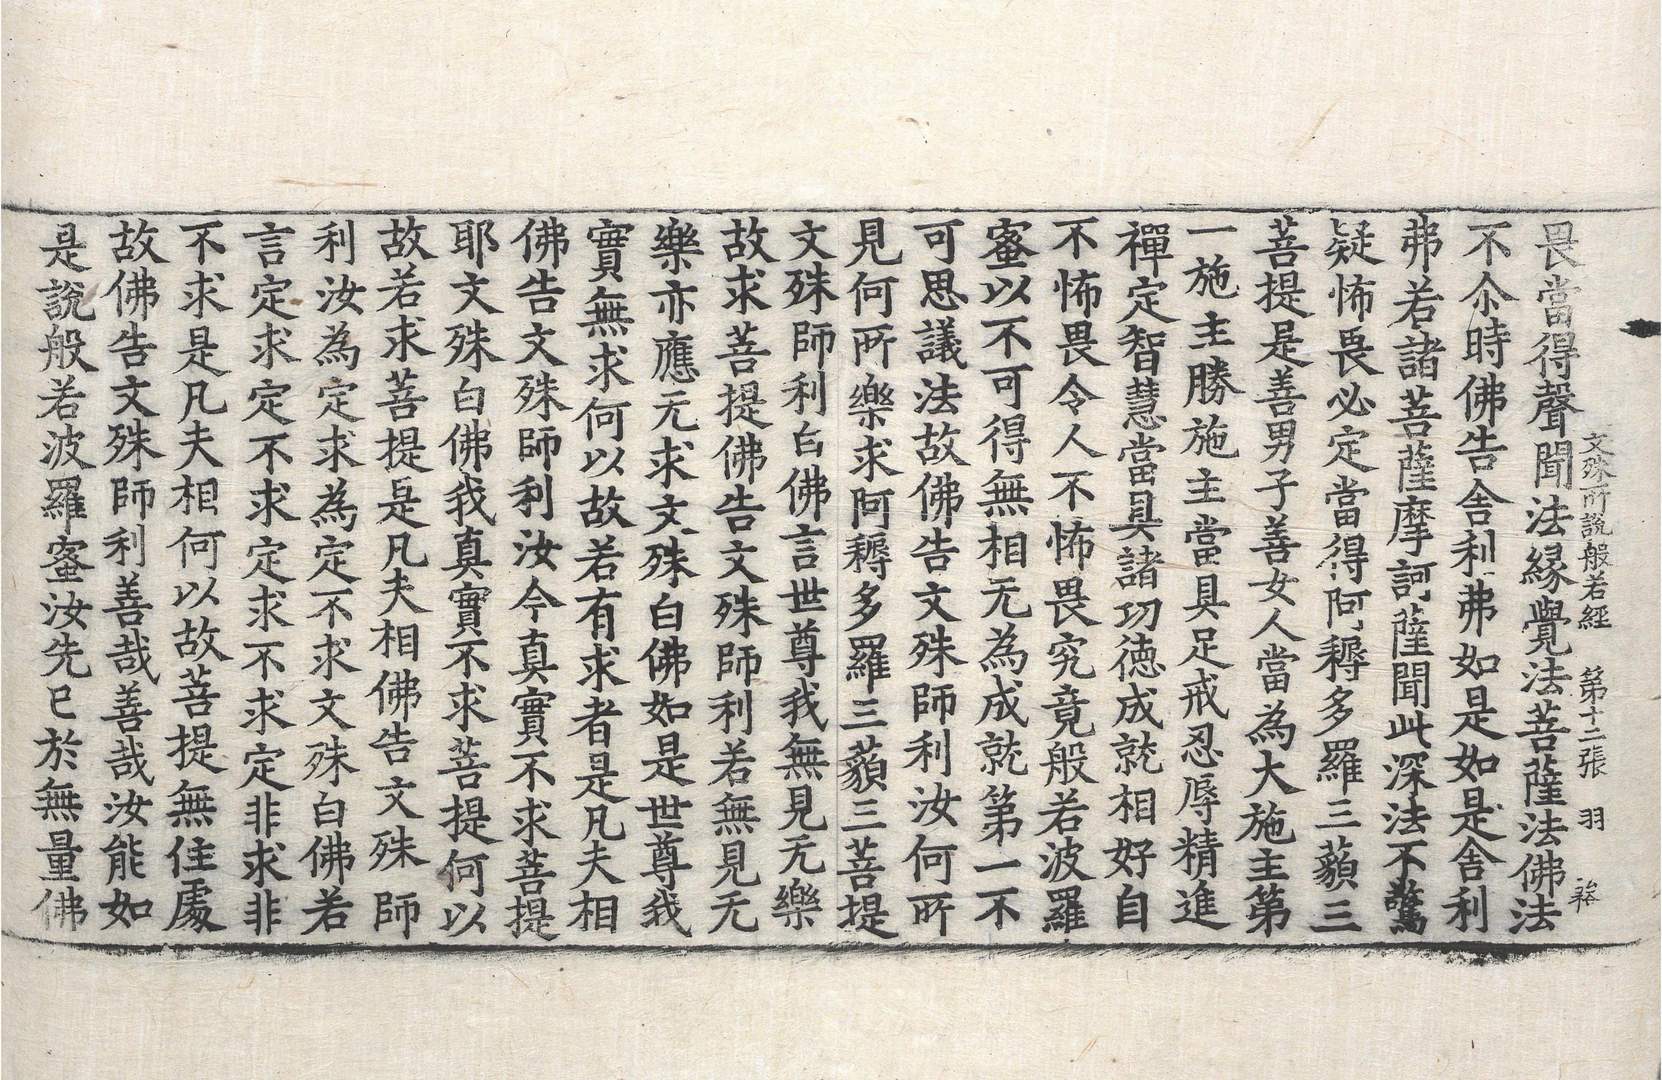 文殊所說般若經　第十二張　羽
畏當得聲聞法緣覺法菩薩法佛法
不尒時佛告舍利弗如是如是舍利
弗若諸菩薩摩訶薩聞此深法不驚
疑怖畏必定當得阿耨多羅三藐三
菩提是善男子善女人當為大施主第
一施主勝施主當具足戒忍辱精進
禪定智慧當具諸功德成就相好自
不怖畏令人不怖畏究竟般若波羅
蜜以不可得無相无為成就第一不
可思議法故佛告文殊師利汝何所
見何所樂求阿耨多羅三藐三菩提
文殊師利白佛言世尊我無見无樂
故求菩提佛告文殊師利若無見无
樂亦應无求文殊白佛如是世尊我
實無求何以故若有求者是凡夫相
佛告文殊師利汝今真實不求菩提
耶文殊白佛我真實不求菩提何以
故若求菩提是凡夫相佛告文殊師
利汝為定求為定不求文殊白佛若
言定求定不求定求不求定非求非
不求是凡夫相何以故菩提無住處
故佛告文殊師利善哉善哉汝能如
是說般若波羅蜜汝先已於無量佛